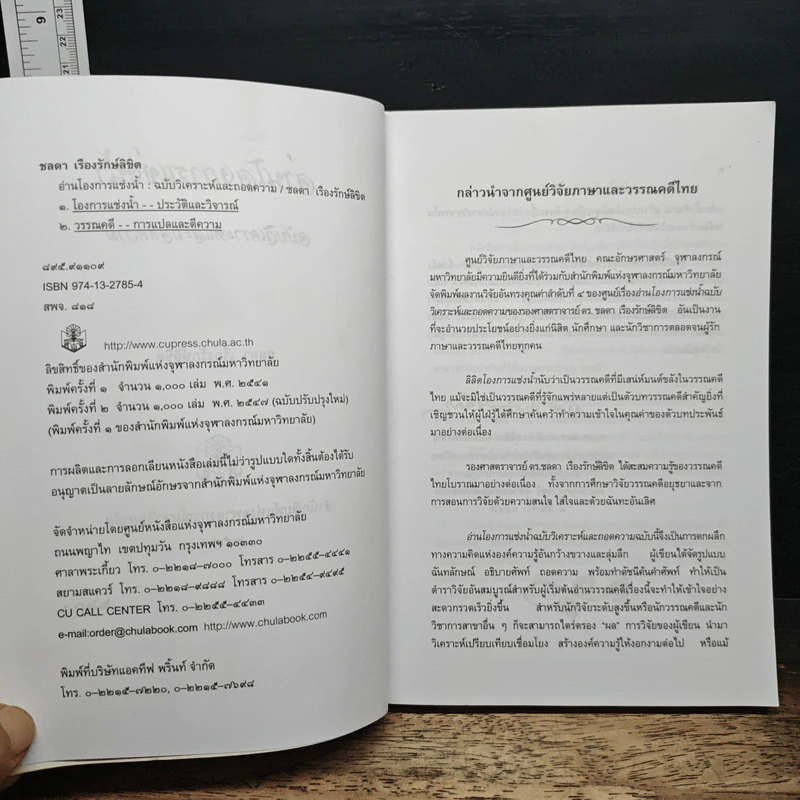 9
23
22
21
ชลดา เรืองรักษ์ลิขิต
อ่านโองการแช่งน้ำ : ฉบับวิเคราะห์และถอดความ / ชลดา เรืองรักษ์ลิขิต
๑. โองการแช่งน้ำ - - ประวัติและวิจารณ์
๒. วรรณคดี - - การแปลและตีความ
๘๙๕.๙๑๑๐๙
ISBN 974-13-2785-4
สพจ. ๘๑๘
http://www.cupress.chula.ac.th
ลิขสิทธิ์ของสำนักพิมพ์แห่งจุฬาลงกรณ์มหาวิทยาลัย
พิมพ์ครั้งที่ ๑ จำนวน ๑,๐๐๐ เล่ม พ.ศ. ๒๕๔๑
พิมพ์ครั้งที่ ๒ จำนวน ๑,๐๐๐ เล่ม พ.ศ. ๒๕๔๗ (ฉบับปรับปรุงใหม่)
(พิมพ์ครั้งที่ ๑ ของสำนักพิมพ์แห่งจุฬาลงกรณ์มหาวิทยาลัย)
การผลิตและการลอกเลียนหนังสือเล่มนี้ไม่ว่ารูปแบบใดทั้งสิ้นต้องได้รับ
อนุญาตเป็นลายลักษณ์อักษรจากสำนักพิมพ์แห่งจุฬาลงกรณ์มหาวิทยาลัย
จัดจำหน่ายโดยศูนย์หนังสือแห่งจุฬาลงกรณ์มหาวิทยาลัย
ถนนพญาไท เขตปทุมวัน กรุงเทพฯ ๑๐๓๓๐
ศาลาพระเกี้ยว โทร. ๐-๒๒๑๘-๗๐๐๐ โทรสาร ๐-๒๒๕๕-๔๔๔๑
สยามสแควร์ โทร. ๐-๒๒๑๘-๙๘๘๘ โทรสาร ๐-๒๒๕๔-๙๔๙๕
CU CALL CENTER โทร. ๐-๒๒๕๕-๔๔๓๓
e-mail:order@chulabook.com http://www.chulabook.com
พิมพ์ที่บริษัทแอคทีฟ พริ้นท์ จำกัด
โทร. ๐-๒๒๑๕-๗๒๒๐, ๐-๒๒๑๕-๗๖๙๘
กล่าวนำจากศูนย์วิจัยภาษาและวรรณคดีไทย
ศูนย์วิจัยภาษาและวรรณคดีไทย คณะอักษรศาสตร์ จุฬาลงกรณ์
มหาวิทยาลัยมีความยินดียิ่งที่ได้ร่วมกับสำนักพิมพ์แห่งจุฬาลงกรณ์มหาวิทยาลัย
จัดพิมพ์ผลงานวิจัยอันทรงคุณค่าลำดับที่ ๔ ของศูนย์เรื่องอ่านโองการแช่งน้ำฉบับ
วิเคราะห์และถอดความของรองศาสตราจารย์ ดร. ชลดา เรืองรักษ์ลิขิต อันเป็นงาน
ที่จะอำนวยประโยชน์อย่างยิ่งแก่นิสิต นักศึกษา และนักวิชาการตลอดจนผู้รัก
ภาษาและวรรณคดีไทยทุกคน
ลิลิตโองการแช่งน้ำนับว่าเป็นวรรณคดีที่มีเสน่ห์มนต์ขลังในวรรณคดี
ไทย แม้จะมิใช่เป็นวรรณคดีที่รู้จักแพร่หลายแต่เป็นตัวบทวรรณคดีสำคัญยิ่งที่
เชิญชวนให้ผู้ใฝ่รู้ได้ศึกษาค้นคว้าทำความเข้าใจในคุณค่าของตัวบทประพันธ์
มาอย่างต่อเนื่อง
รองศาสตราจารย์ ดร.ชลดา เรืองรักษ์ลิขิต ได้สะสมความรู้ของวรรณคดี
ไทยโบราณมาอย่างต่อเนื่อง ทั้งจากการศึกษาวิจัยวรรณคดีอยุธยาและจาก
การสอนการวิจัยด้วยความสนใจ ใส่ใจและด้วยฉันทะอันเลิศ
อ่านโองการแช่งน้ำฉบับวิเคราะห์และถอดความฉบับนี้จึงเป็นการตกผลึก
ทางความคิดแห่งองค์ความรู้อันกว้างขวางและลุ่มลึก ผู้เขียนได้จัดรูปแบบ
ฉันทลักษณ์ อธิบายศัพท์ ถอดความ พร้อมทำดัชนีค้นคำศัพท์ ทำให้เป็น
ตำราวิจัยอันสมบูรณ์สำหรับผู้เริ่มต้นอ่านวรรณคดีเรื่องนี้จะทำให้เข้าใจอย่าง
สะดวกรวดเร็วยิ่งขึ้น สำหรับนักวิจัยระดับสูงขึ้นหรือนักวรรณคดีและนัก
วิชาการสาขาอื่น ๆ ก็จะสามารถไตร่ตรอง "ผล" การวิจัยของผู้เขียน นำมา
วิเคราะห์เปรียบเทียบเชื่อมโยง สร้างองค์ความรู้ให้งอกงามต่อไป หรือแม้